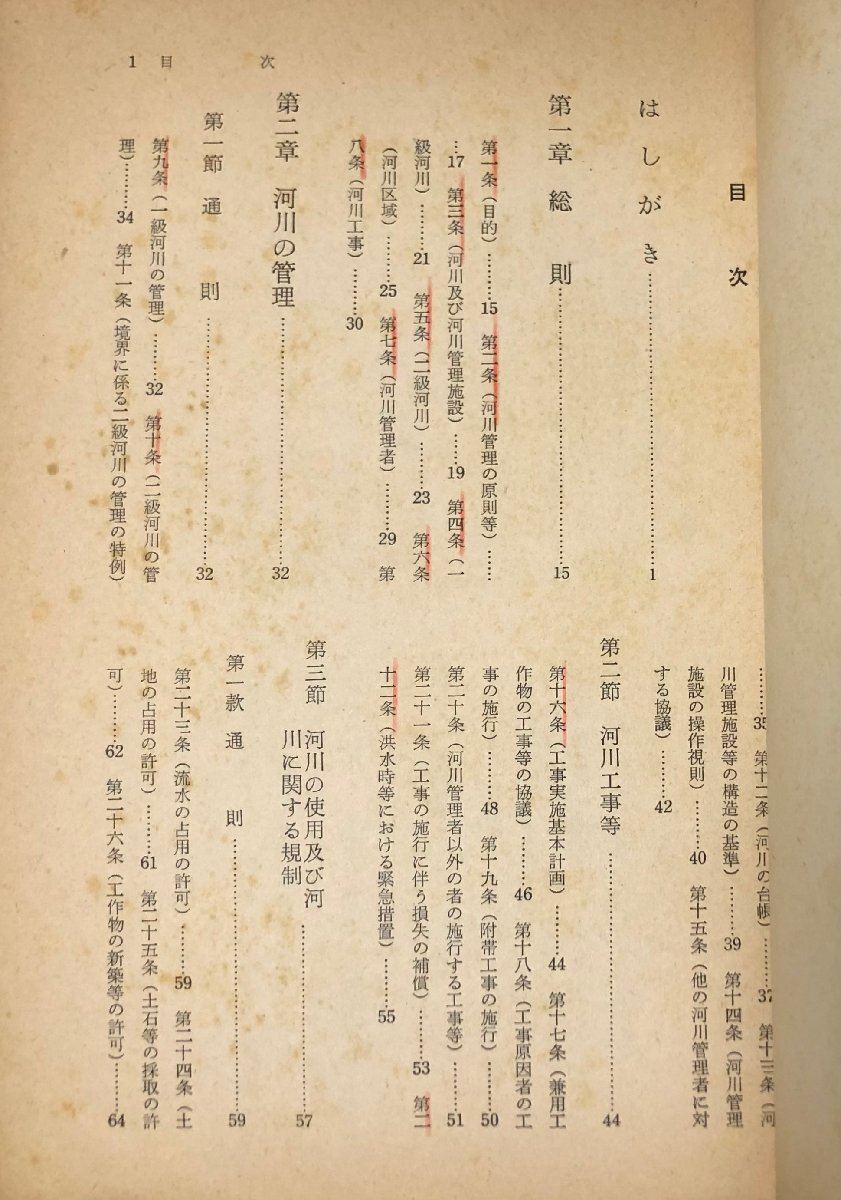 1 目 次
目次
はしがき……………1
第一章 総則……………15
第一条(目的)…………15 第二条(河川管理の原則等)……
…17 第三条(河川及び河川管理施設)……19 第四条(一
級河川)…………21 第五条(二級河川)…………23 第六条
(河川区域)…………25 第七条(河川管理者)…………29 第
八条(河川工事)…………30
第二章 河川の管理……………32
第一節 通則……………32
第九条(一級河川の管理)…………32 第十条(二級河川の管
理)…………34 第十一条(境界に係る二級河川の管理の特例)
…………35 第十二条(河川の台帳)…………37 第十三条(河
川管理施設等の構造の基準)…………39 第十四条(河川管理
施設の操作規則)…………40 第十五条(他の河川管理者に対
する協議)…………42
第二節 河川工事等……………44
第十六条(工事実施基本計画)…………44 第十七条(兼用工
作物の工事等の協議)…………46 第十八条(工事原因者の工
事の施行)…………48 第十九条(附帯工事の施行)…………50
第二十条(河川管理者以外の者の施行する工事等)…………51
第二十一条(工事の施行に伴う損失の補償)…………53 第二
十二条(洪水時等における緊急措置)…………55
第三節 河川の使用及び河
川に関する規制……………57
第一款 通則……………59
第二十三条(流水の占用の許可)…………59 第二十四条(土
地の占用の許可)…………61 第二十五条(土石等の採取の許
可)…………62 第二十六条(工作物の新築等の許可)…………64